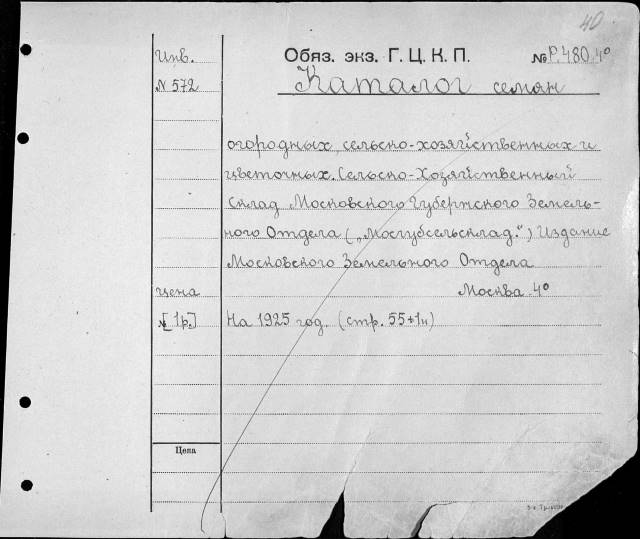 40
Инв. Обяз. экз. Г. Ц. К. П. № Р.480.4°
N 572 Каталог семян
огородных, сельско-хозяйственных и
цветочных. Сельско-Хозяйственный
Склад Московского Губернского Земель-
ного Отдела („Мосгубсельсклад.“) Издание
Московского Земельного Отдела
цена Москва 4°
№ [1р.] На 1925 год. (стр. 55+1н)
Цена